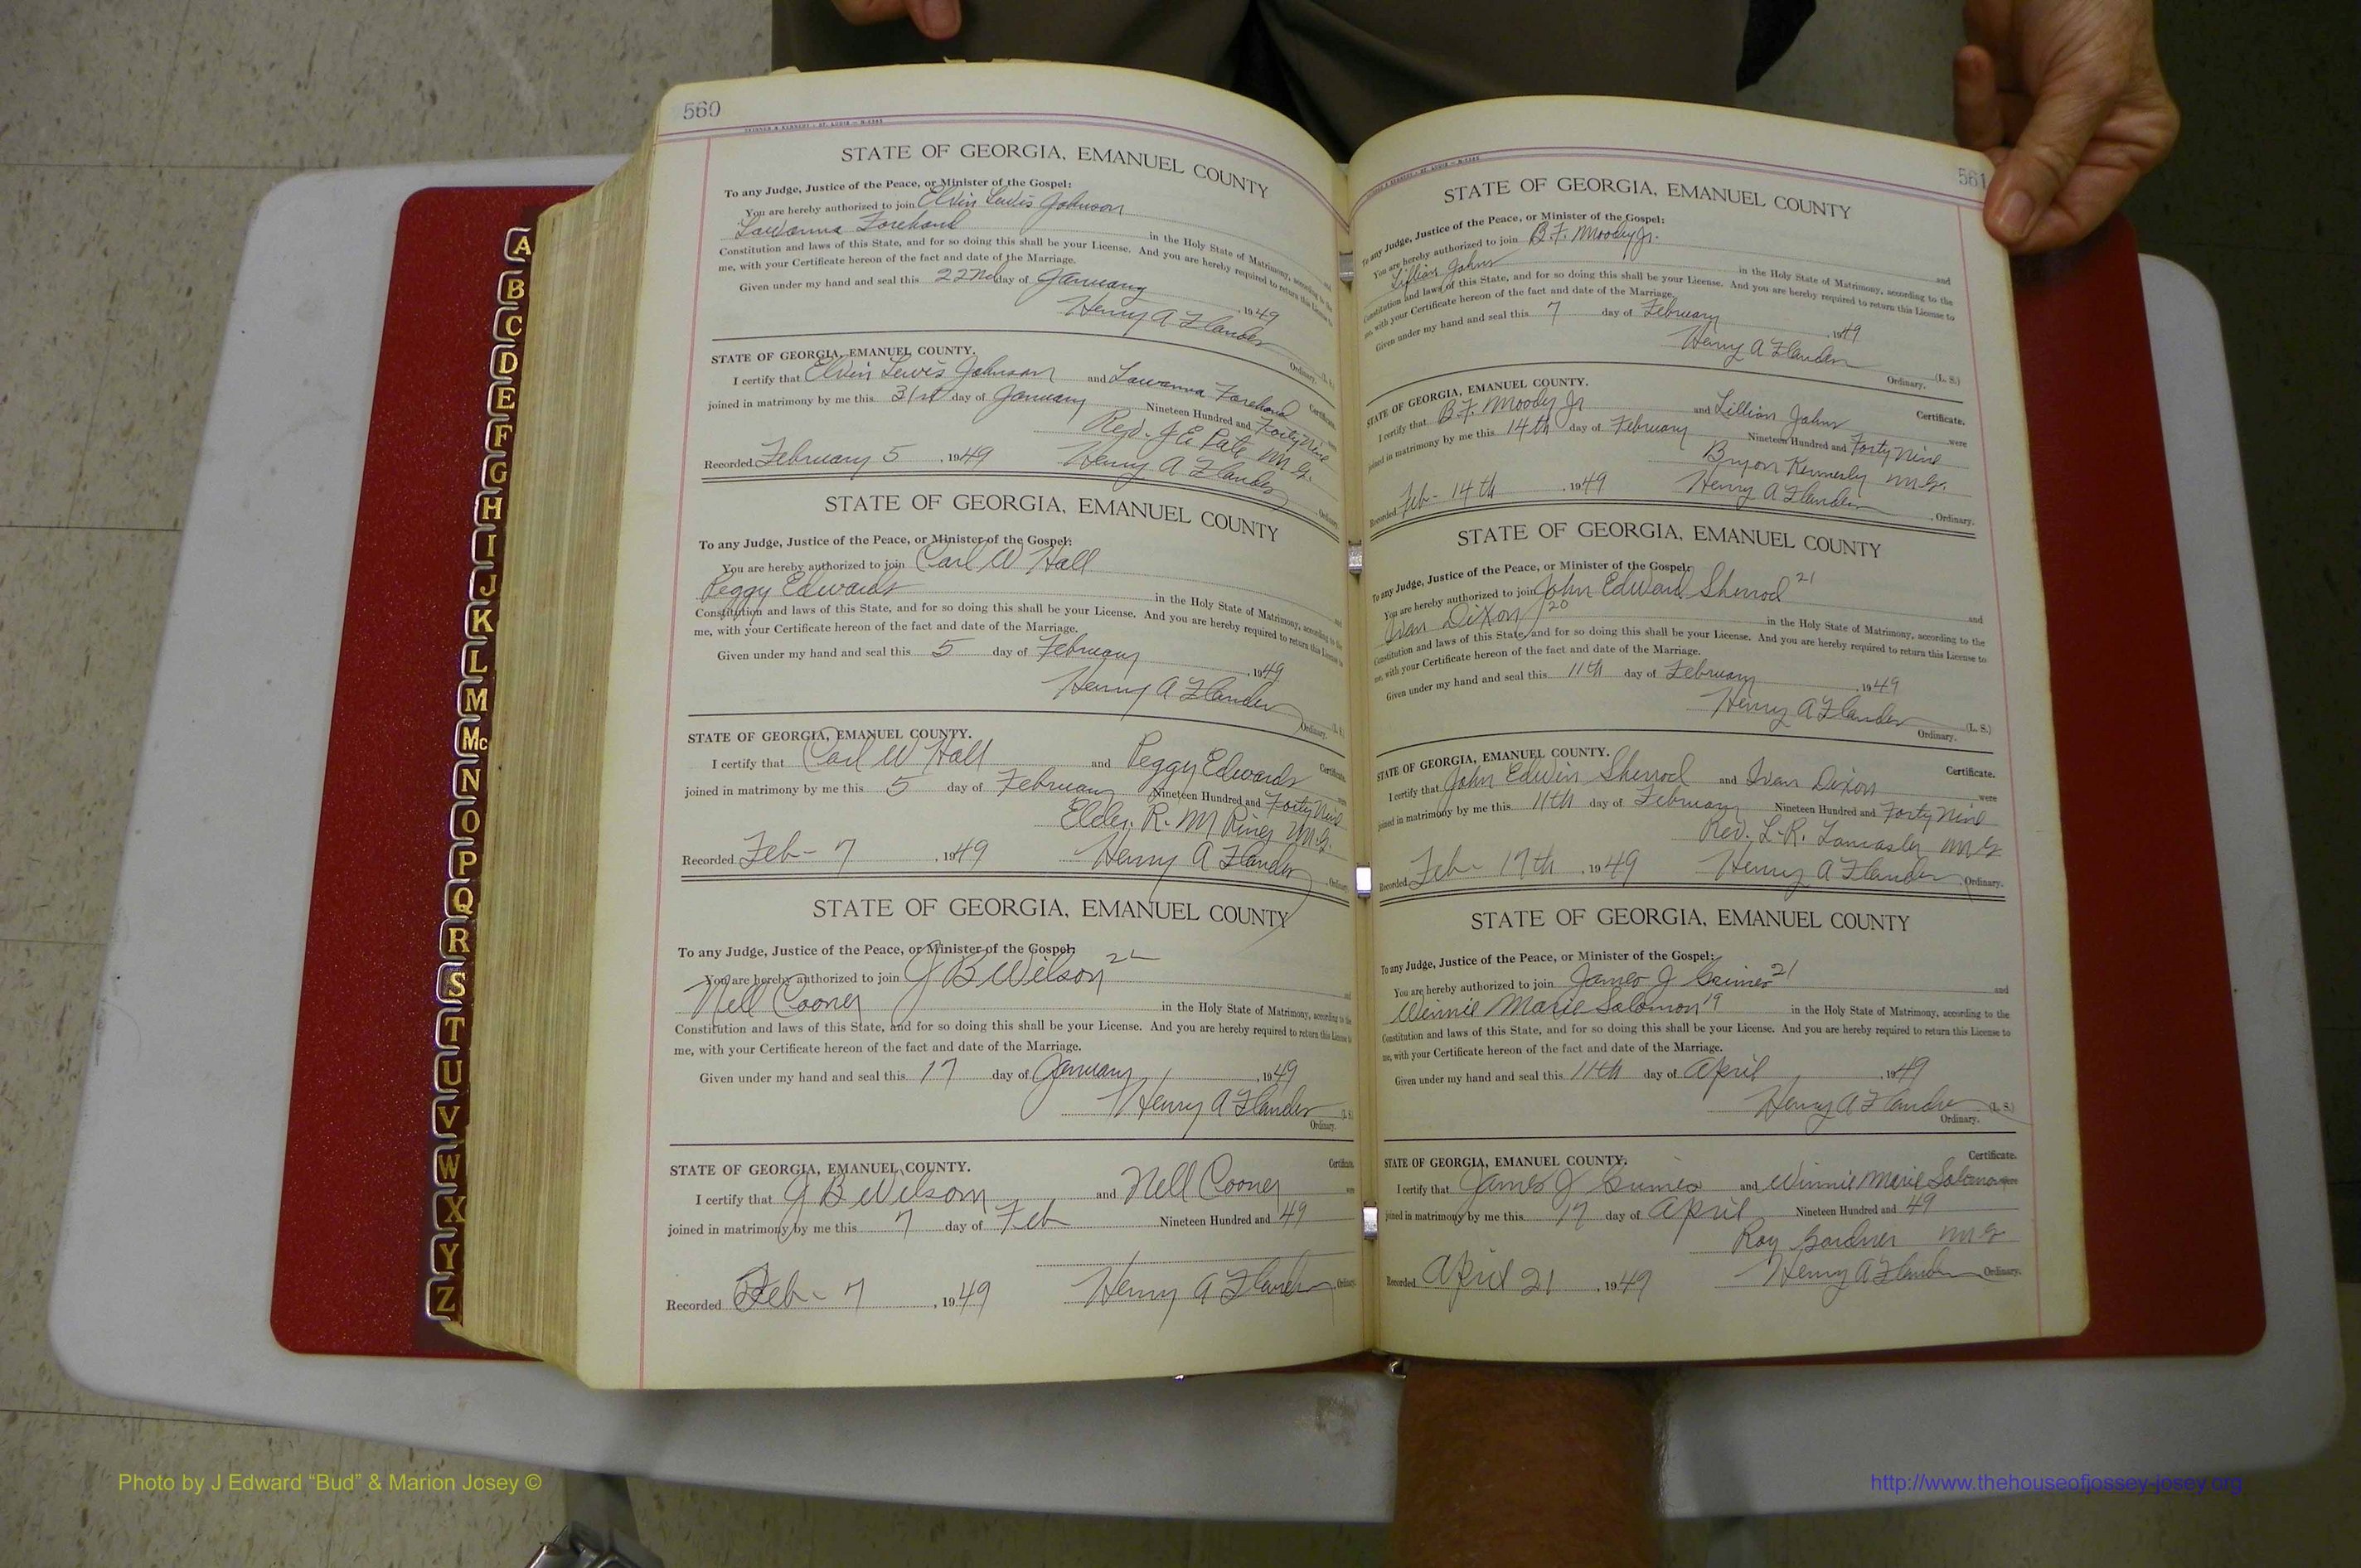 560
STATE OF GEORGIA, EMANUEL COUNTY
To any Judge, Justice of the Peace, or Minister of the Gospel:
You are hereby authorized to join Elvin Lewis Johnson and
Lawanna Forehand in the Holy State of Matrimony, according to the
Constitution and laws of this State, and for so doing this shall be your License. And you are hereby required to return this License to
me, with your Certificate hereon of the fact and date of the Marriage.
Given under my hand and seal this 22nd day of January, 1949
Henry A Flanders (L. S.)
Ordinary.
STATE OF GEORGIA, EMANUEL COUNTY. Certificate.
I certify that Elvin Lewis Johnson and Lawanna Forehand were
joined in matrimony by me this 31st day of January Nineteen Hundred and Forty Nine
Rev. J E Pate M. G.
Recorded February 5, 1949 Henry A Flanders, Ordinary.
STATE OF GEORGIA, EMANUEL COUNTY
To any Judge, Justice of the Peace, or Minister of the Gospel:
You are hereby authorized to join Carl W Hall and
Peggy Edwards in the Holy State of Matrimony, according to the
Constitution and laws of this State, and for so doing this shall be your License. And you are hereby required to return this License to
me, with your Certificate hereon of the fact and date of the Marriage.
Given under my hand and seal this 5 day of February, 1949
Henry A Flanders (L. S.)
Ordinary.
STATE OF GEORGIA, EMANUEL COUNTY. Certificate.
I certify that Carl W Hall and Peggy Edwards were
joined in matrimony by me this 5 day of February Nineteen Hundred and Forty Nine
Elder. R. M M.G.
Recorded Feb- 7, 1949 Henry A Flanders, Ordinary.
STATE OF GEORGIA, EMANUEL COUNTY
To any Judge, Justice of the Peace, or Minister of the Gospel:
You are hereby authorized to join J B Wilson 22 and
Nell Cooner in the Holy State of Matrimony, according to the
Constitution and laws of this State, and for so doing this shall be your License. And you are hereby required to return this License to
me, with your Certificate hereon of the fact and date of the Marriage.
Given under my hand and seal this 17 day of January, 1949
Henry A Flanders (L. S.)
Ordinary.
STATE OF GEORGIA, EMANUEL COUNTY. Certificate.
I certify that J B Wilson and Nell Cooner were
joined in matrimony by me this 7 day of Feb Nineteen Hundred and 49
Recorded Feb- 7, 1949 Henry A Flanders, Ordinary.
561
STATE OF GEORGIA, EMANUEL COUNTY
To any Judge, Justice of the Peace, or Minister of the Gospel:
You are hereby authorized to join B.F. Moody Jr. and
Lillian Johns in the Holy State of Matrimony, according to the
Constitution and laws of this State, and for so doing this shall be your License. And you are hereby required to return this License to
me, with your Certificate hereon of the fact and date of the Marriage.
Given under my hand and seal this 7 day of February, 1949
Henry A Flanders (L. S.)
Ordinary.
STATE OF GEORGIA, EMANUEL COUNTY. Certificate.
I certify that B.F. Moody Jr and Lillian Johns were
joined in matrimony by me this 14th day of February Nineteen Hundred and Forty Nine
Bryon Kennerly M.G.
Recorded Feb- 14th, 1949 Henry A Flanders, Ordinary.
STATE OF GEORGIA, EMANUEL COUNTY
To any Judge, Justice of the Peace, or Minister of the Gospel:
You are hereby authorized to join John Edward Sherrod 21 and
Ivan Dixon 20 in the Holy State of Matrimony, according to the
Constitution and laws of this State, and for so doing this shall be your License. And you are hereby required to return this License to
me, with your Certificate hereon of the fact and date of the Marriage.
Given under my hand and seal this 11th day of February, 1949
Henry A Flanders (L. S.)
Ordinary.
STATE OF GEORGIA, EMANUEL COUNTY. Certificate.
I certify that John Edwin Sherrod and Ivan Dixon were
joined in matrimony by me this 11th day of February Nineteen Hundred and Forty Nine
Rev. L.R. Lancaster M G
Recorded Feb- 17th, 1949 Henry A Flanders, Ordinary.
STATE OF GEORGIA, EMANUEL COUNTY
To any Judge, Justice of the Peace, or Minister of the Gospel:
You are hereby authorized to join James J Grimes 21 and
Winnie Marie Solomon 19 in the Holy State of Matrimony, according to the
Constitution and laws of this State, and for so doing this shall be your License. And you are hereby required to return this License to
me, with your Certificate hereon of the fact and date of the Marriage.
Given under my hand and seal this 11th day of April, 1949
Henry A Flanders (L. S.)
Ordinary.
STATE OF GEORGIA, EMANUEL COUNTY. Certificate.
I certify that James J Grimes and Winnie Marie Solomon were
joined in matrimony by me this 17 day of April Nineteen Hundred and 49
Roy Gardner M G
Recorded April 21, 1949 Henry A Flanders Ordinary.
A
B
C
D
E
F
G
H
I
J
K
L
M
Mc
N
O
P
Q
R
S
T
U
V
W
X
Y
Z
Photo by J Edward “Bud” & Marion Josey ©
http://www.thehouseofjossey-josey.org